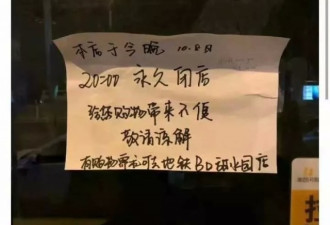 本店于今晚 10.8日
20:00 永久闭店
给您购物带来不便
敬请谅解
有购物需求可去地铁B口